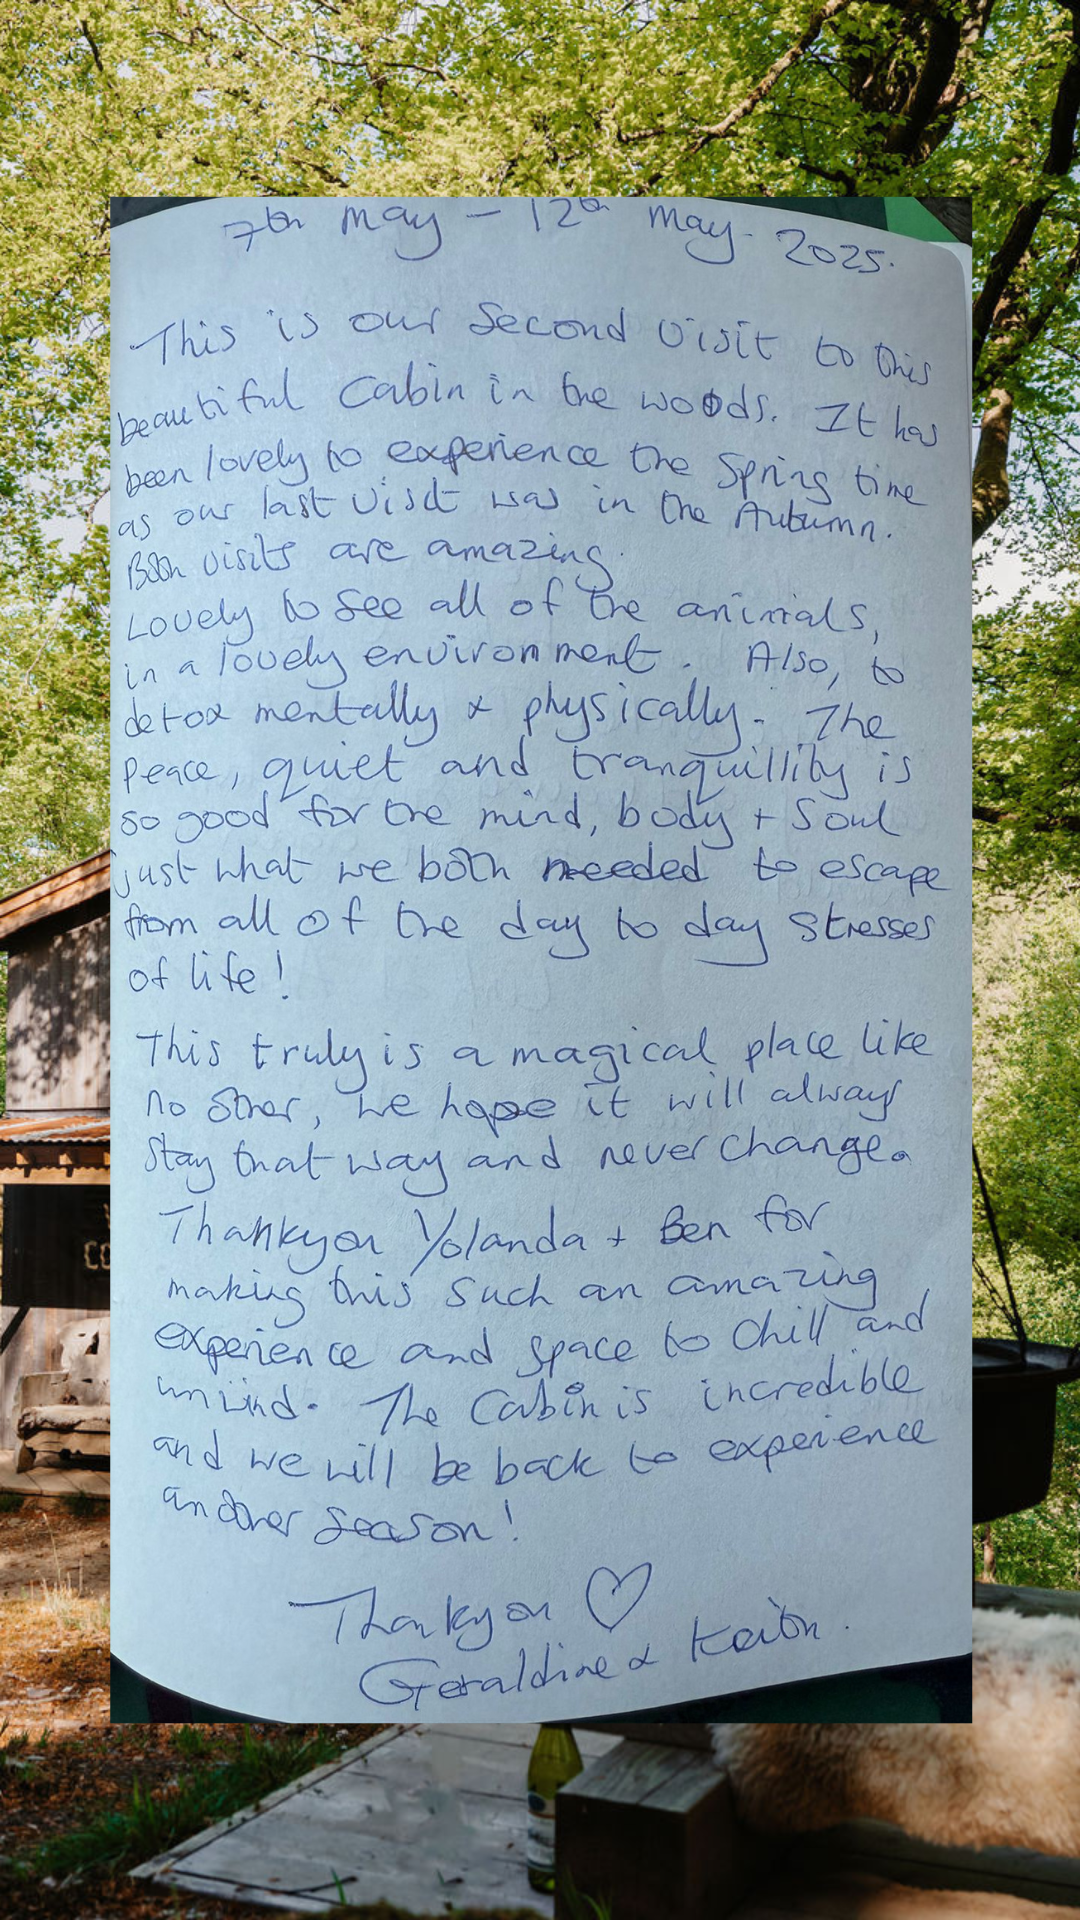 7th May - 12th May - 2025.
This is our Second visit to this
beautiful Cabin in the woods. It has
been lovely to experience the Spring time
as our last visit was in the Autumn.
Both visits are amazing.
Lovely to see all of the animals,
in a lovely environment. Also, to
detox mentally & physically. The
peace, quiet and tranquillity is
so good for the mind, body + Soul
just what we both needed to escape
from all of the day to day stresses
of life!
This truly is a magical place like
no other, we hope it will always
stay that way and never change.
Thankyou Yolanda + Ben for
making this such an amazing
experience and space to chill and
unwind. The Cabin is incredible
and we will be back to experience
another season!
Thankyou ♡
Geraldine & Keith.
CO